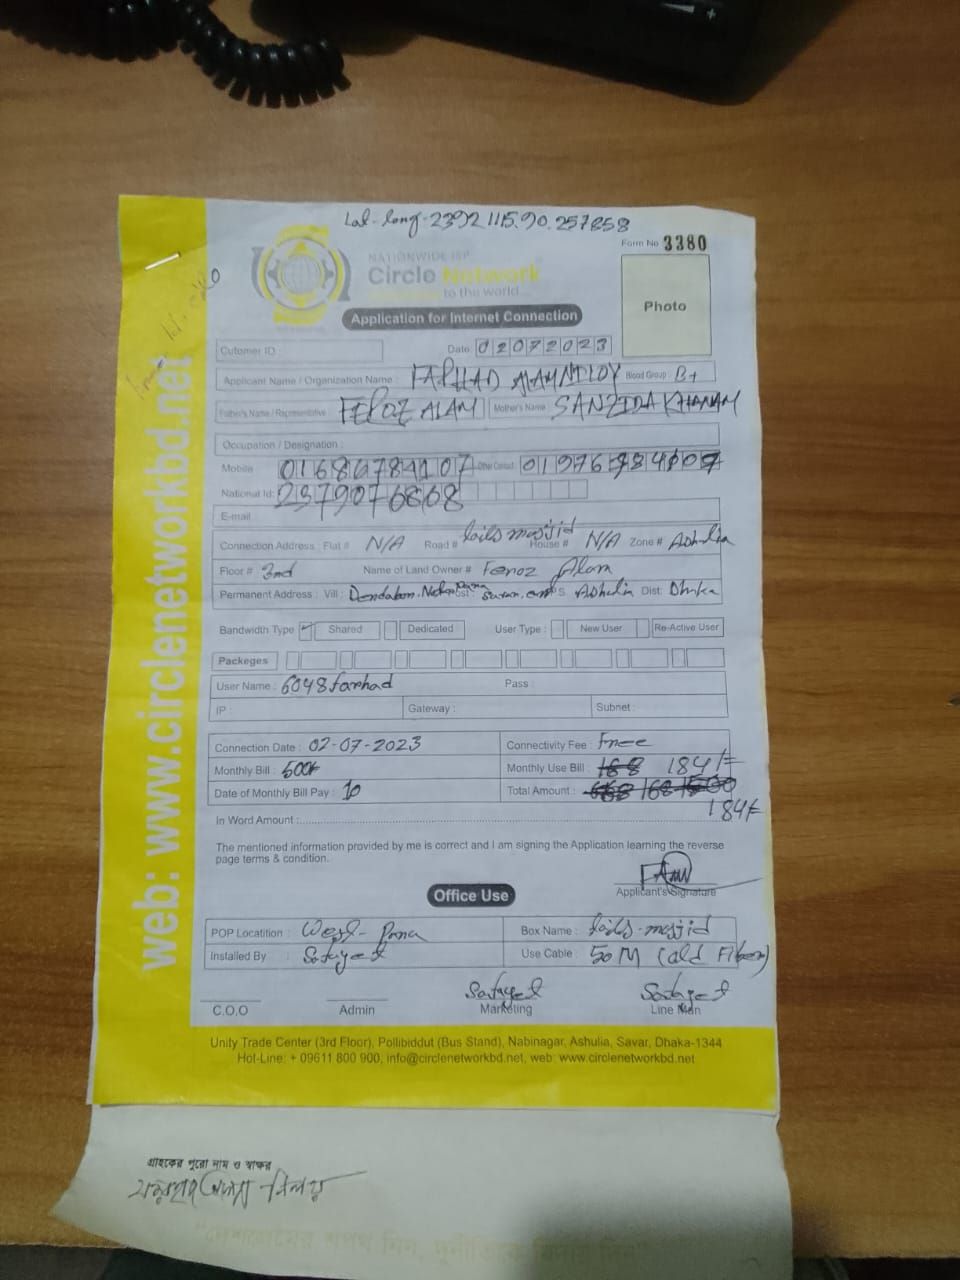 Lat-long-2392 1115.90.257858
Form No 3380
NATIONWIDE ISP
Circle Network
to the world...
Photo
Application for Internet Connection
Cutomer ID
Date 02072023
Applicant Name / Organization Name : FARHAD ALAM NILOY Blood Group : B+
Father's Name / Representative : FEROZ ALAM Mother's Name : SANZIDA KHANAM
Occupation / Designation :
Mobile Other Contact
National Id: 2379076868
E-mail
Connection Address : Flat # N/A Road # masjid House # N/A Zone # Ashulia
Floor # 3nd Name of Land Owner # Feroz Alam
Permanent Address : Vill : Ashulia Dist: Dhaka
Bandwidth Type Shared Dedicated User Type : New User Re-Active User
Packeges
User Name : 6048farhad Pass :
IP : Gateway : Subnet :
Connection Date : 02-07-2023 Connectivity Fee : Free
Monthly Bill : 500 Monthly Use Bill : 184/=
Date of Monthly Bill Pay : 10 Total Amount :
184/=
In Word Amount :
The mentioned information provided by me is correct and I am signing the Application learning the reverse
page terms & condition.
Applicant's Signature
Office Use
POP Locatition : West-Para Box Name : masjid
Installed By : Use Cable : 50M (old Fiber)
C.O.O Admin Marketing Line Man
Unity Trade Center (3rd Floor), Pollibiddut (Bus Stand), Nabinagar, Ashulia, Savar, Dhaka-1344
Hot-Line: + 09611 800 900, info@circlenetworkbd.net, web: www.circlenetworkbd.net
web: www.circlenetworkbd.net
গ্রাহকের পুরো নাম ও স্বাক্ষর